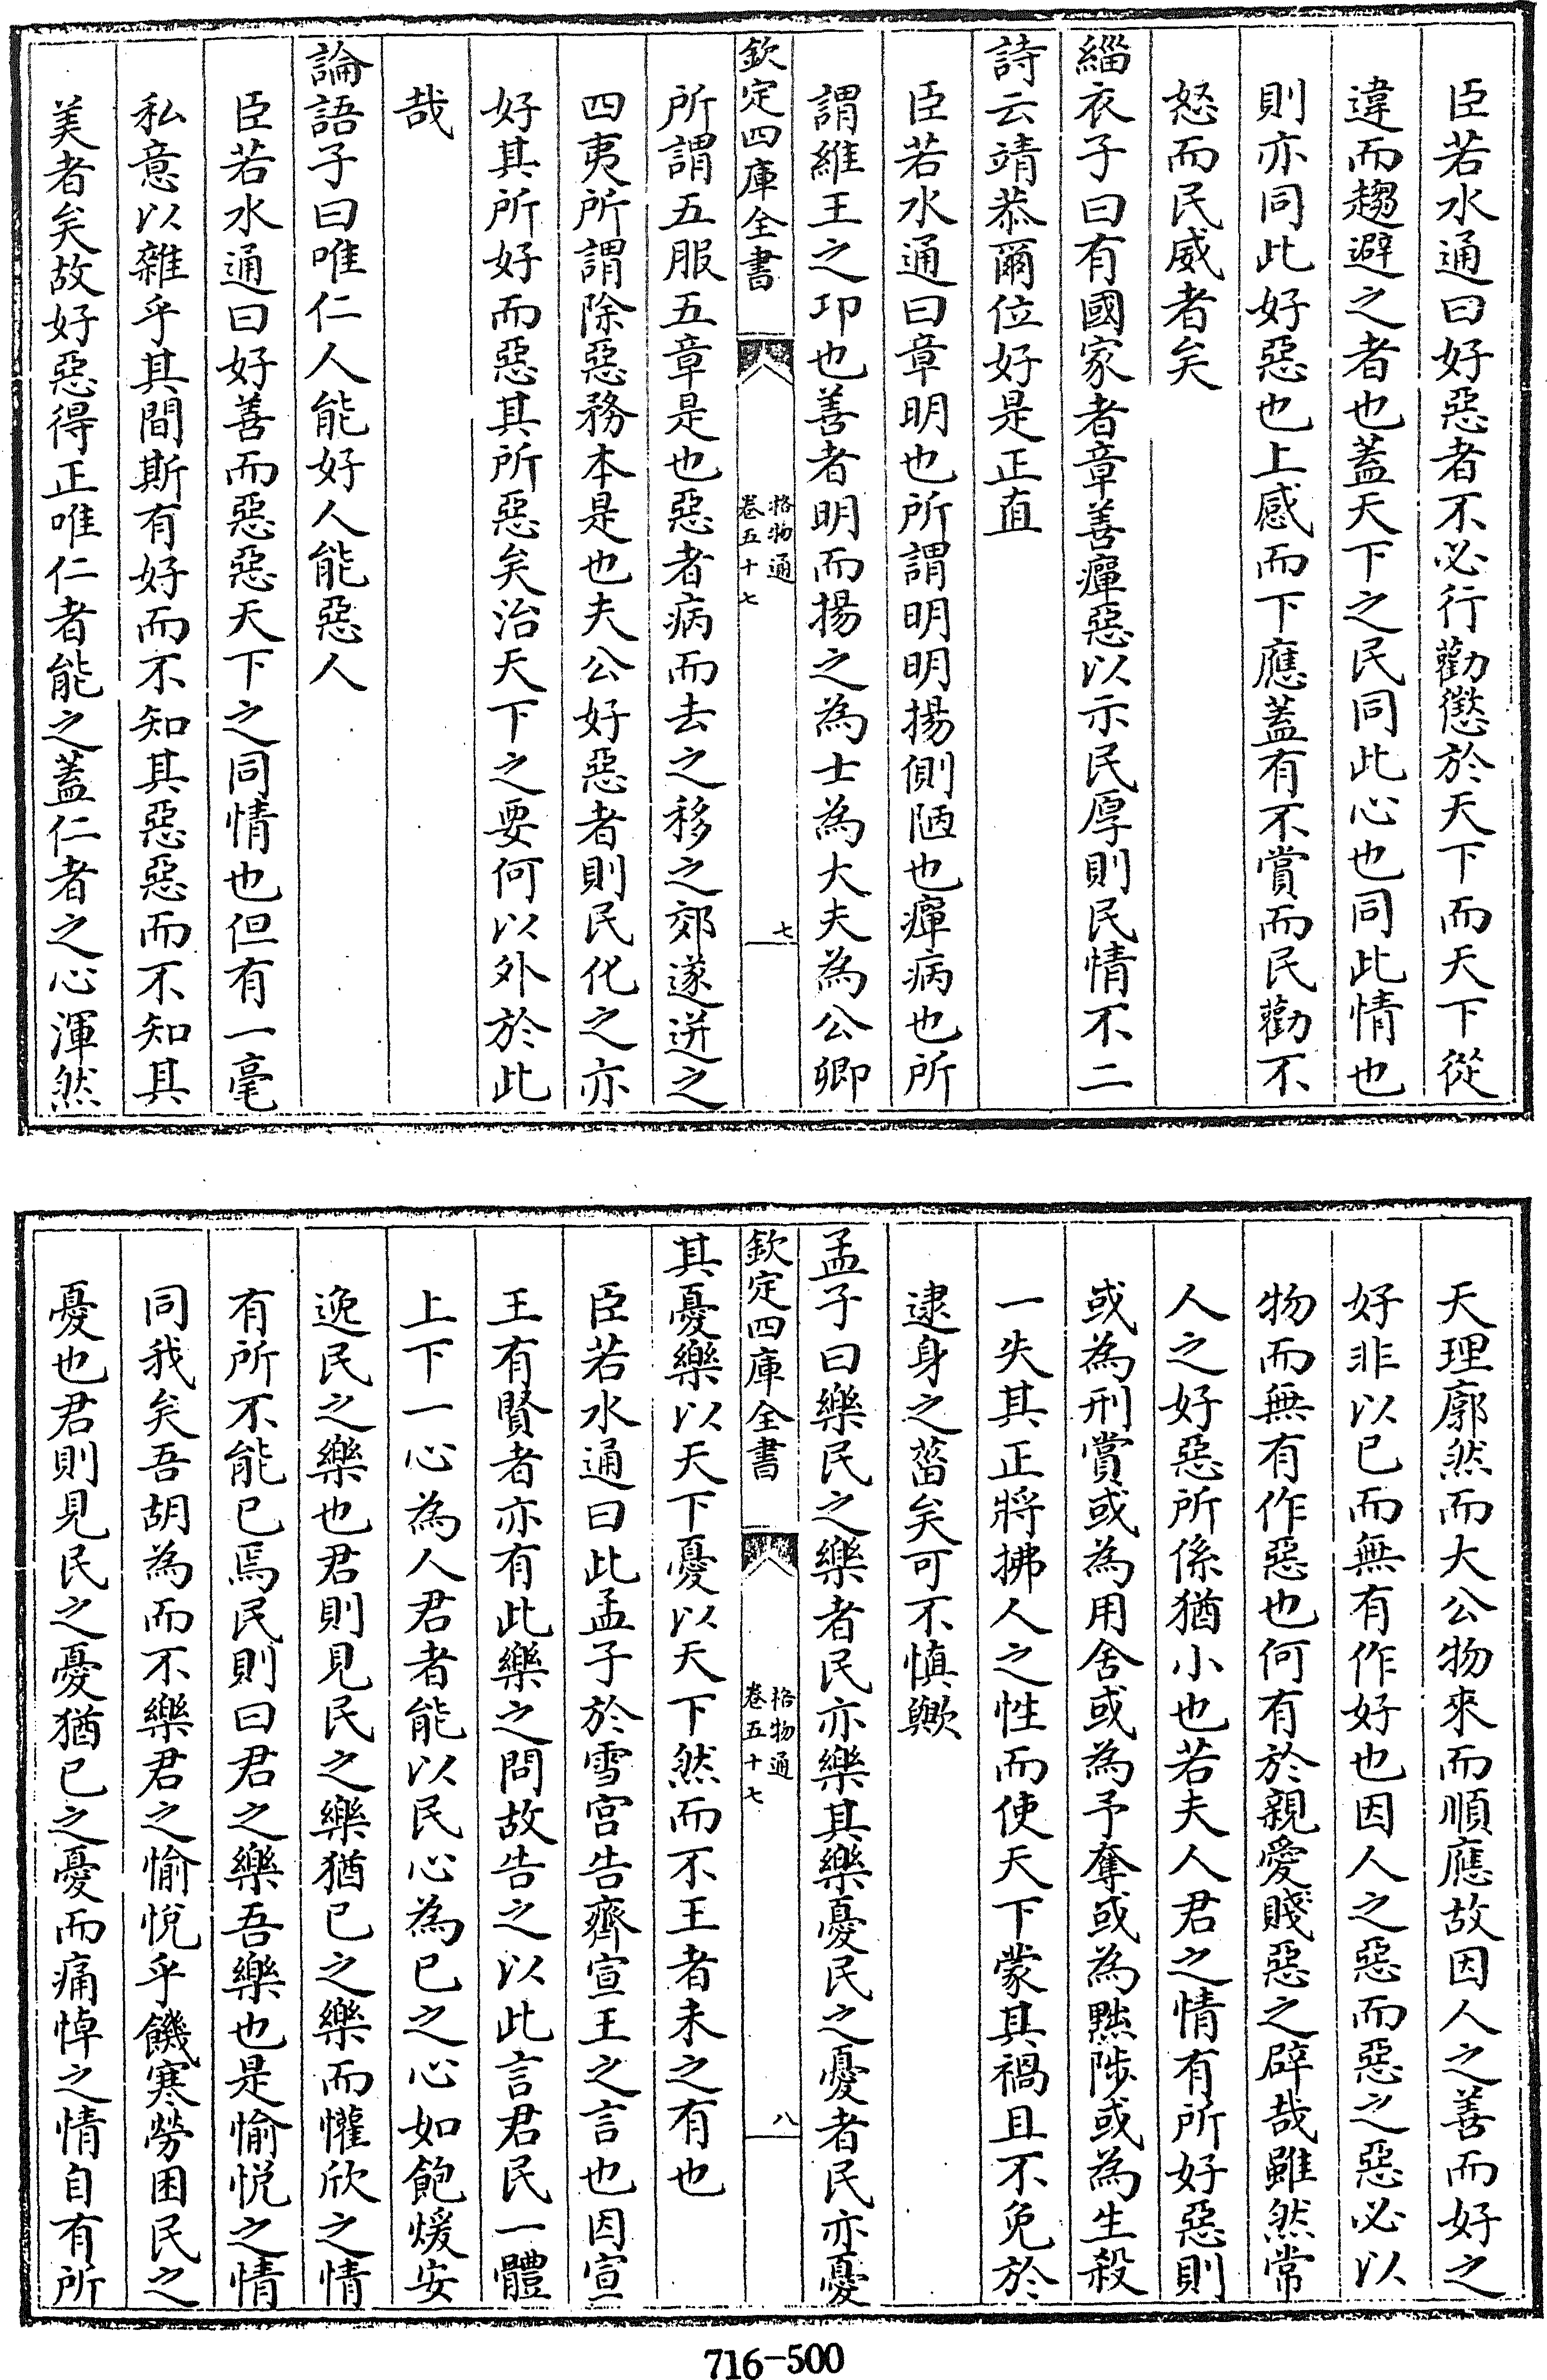 臣若水通曰好惡者不必行勸懲於天下而天下從
違而趨避之者也蓋天下之民同此心也同此情也
則亦同此好惡也上感而下應蓋有不賞而民勸不
怒而民威者矣
緇衣子曰有國家者章善癉惡以示民厚則民情不二
詩云靖恭爾位好是正直
臣若水通曰章明也所謂明明揚側陋也癉病也所
謂維王之卭也善者明而揚之為士為大夫為公卿
欽定四庫全書
格物通
卷五十七
七
所謂五服五章是也惡者病而去之移之郊遂迸之
四夷所謂除惡務本是也夫公好惡者則民化之亦
好其所好而惡其所惡矣治天下之要何以外於此
哉
論語子曰唯仁人能好人能惡人
臣若水通曰好善而惡惡天下之同情也但有一毫
私意以雜乎其間斯有好而不知其惡惡而不知其
美者矣故好惡得正唯仁者能之蓋仁者之心渾然
天理廓然而大公物來而順應故因人之善而好之
好非以已而無有作好也因人之惡而惡之惡必以
物而無有作惡也何有於親愛賤惡之辟哉雖然常
人之好惡所係猶小也若夫人君之情有所好惡則
或為刑賞或為用舍或為予奪或為黜陟或為生殺
一失其正將拂人之性而使天下蒙其禍且不免於
逮身之菑矣可不慎歟
孟子曰樂民之樂者民亦樂其樂憂民之憂者民亦憂
欽定四庫全書
格物通
卷五十七
八
其憂樂以天下憂以天下然而不王者未之有也
臣若水通曰此孟子於雪宮告齊宣王之言也因宣
王有賢者亦有此樂之問故告之以此言君民一體
上下一心為人君者能以民心為已之心如飽煖安
逸民之樂也君則見民之樂猶已之樂而懽欣之情
有所不能已焉民則曰君之樂吾樂也是愉悅之情
同我矣吾胡為而不樂君之愉悅乎饑寒勞困民之
憂也君則見民之憂猶已之憂而痛悼之情自有所
716-500